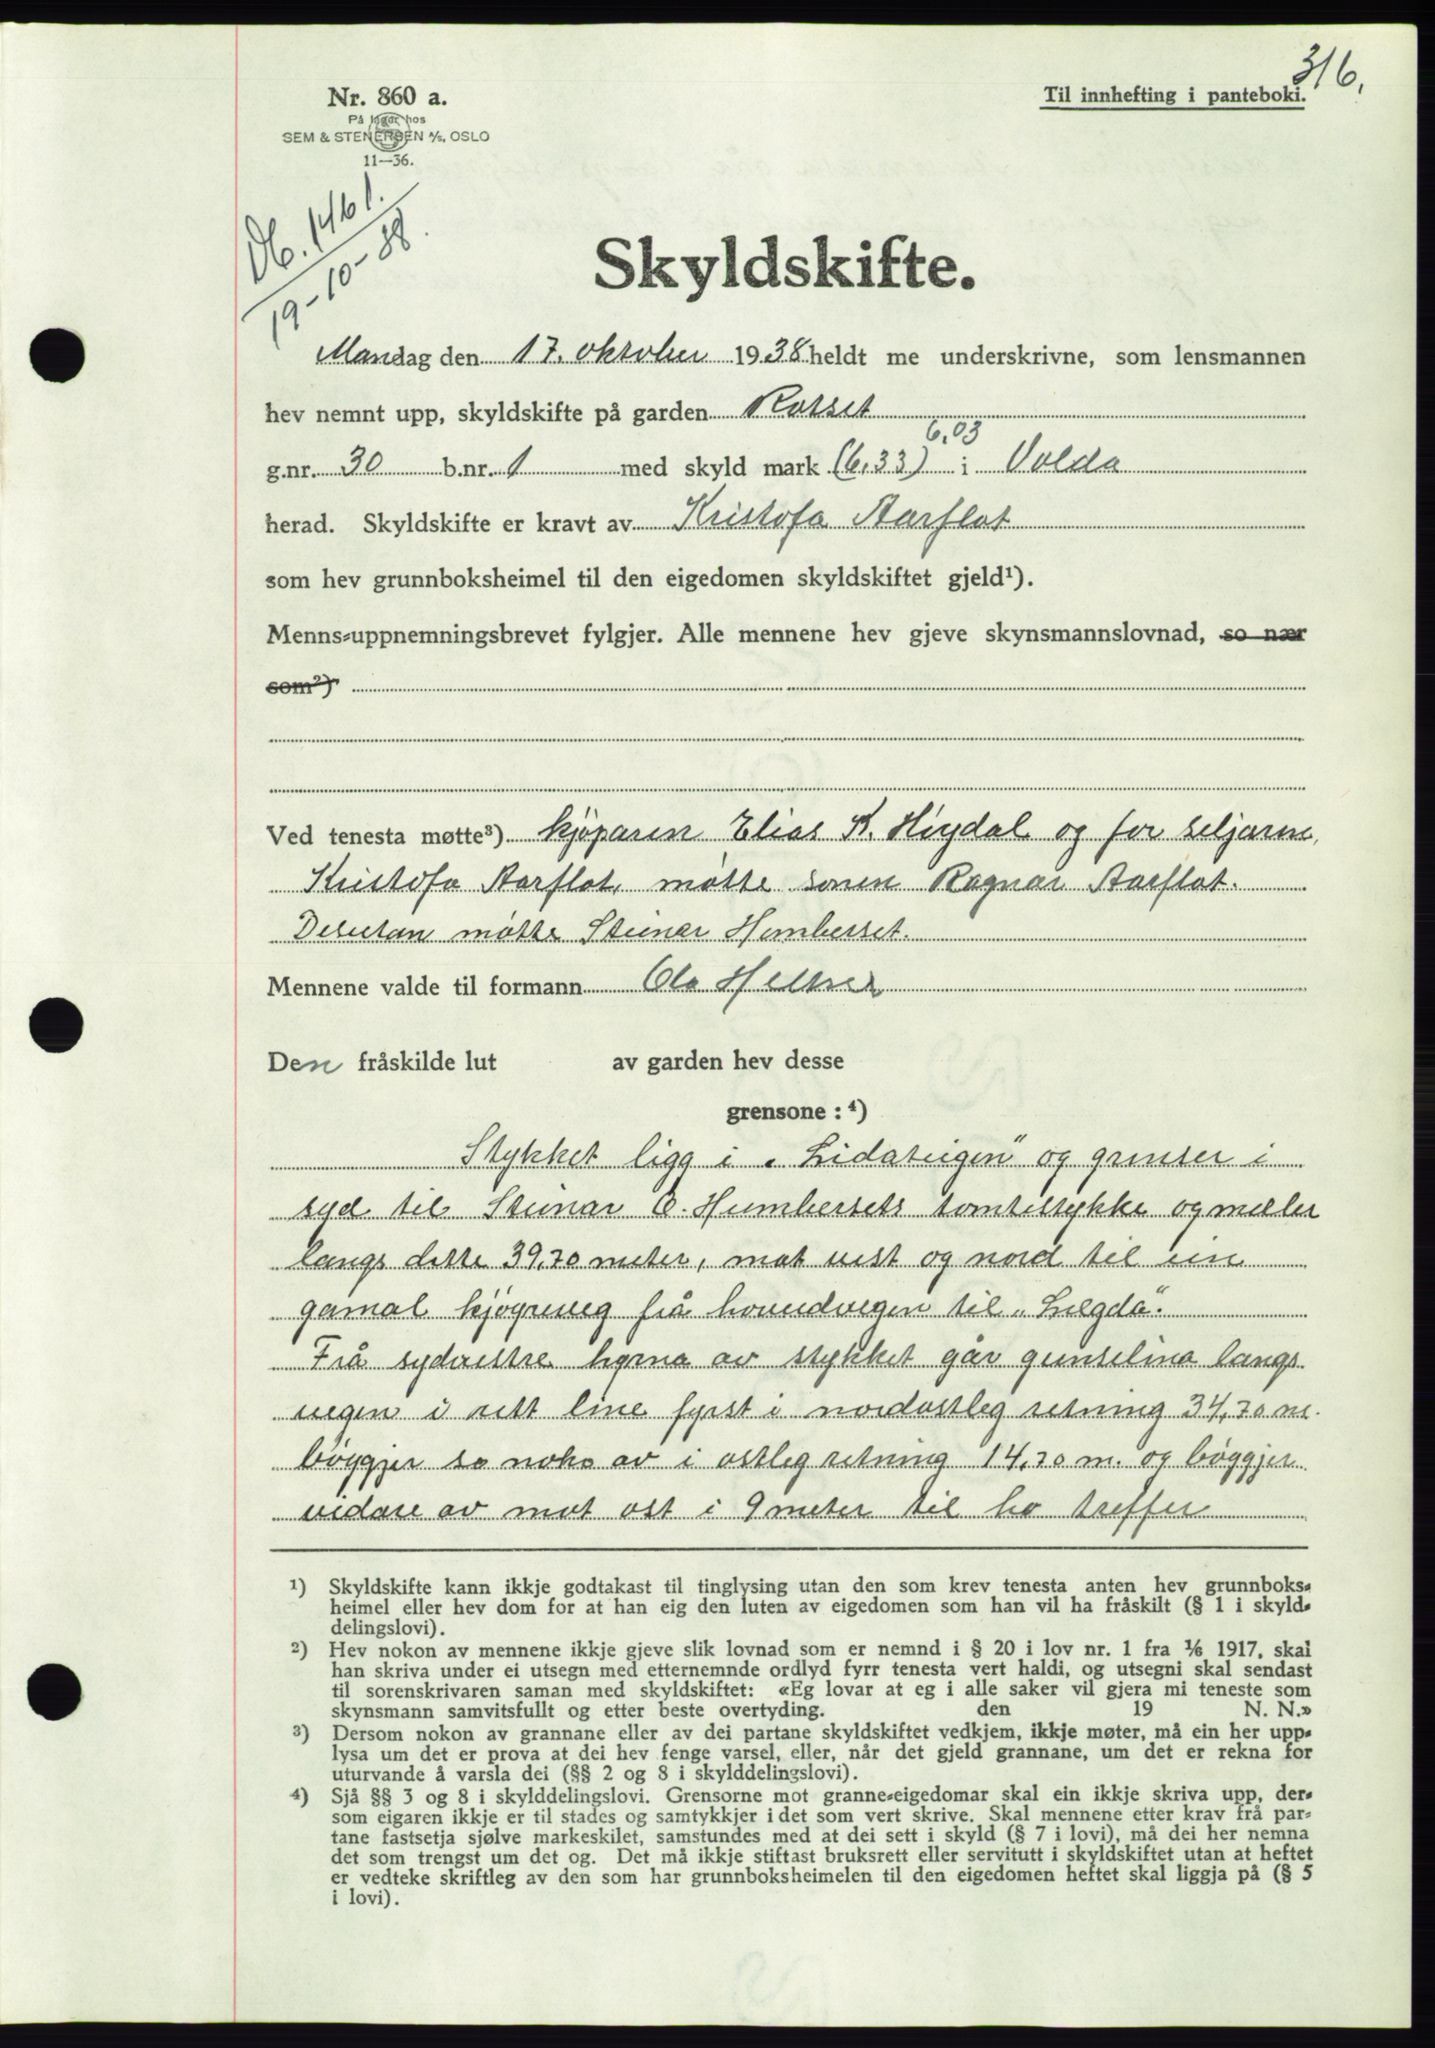 316.
Nr. 860 a.
Til innhefting i panteboki.
På lager hos
SEM & STENERSEN A/S, OSLO
11—36.
Db. 1461.
19-10-38.
Skyldskifte.
Mandag den 17. oktober 1938 heldt me underskrivne, som lensmannen
hev nemnt upp, skyldskifte på garden Rotset
6,03
g.nr. 30 b.nr. 1 med skyld mark (6,33) i Volda
herad. Skyldskifte er kravt av Kristofa Aarflot
som hev grunnboksheimel til den eigedomen skyldskiftet gjeld¹).
Menns-uppnemningsbrevet fylgjer. Alle mennene hev gjeve skynsmannslovnad, so nær
som²)
Ved tenesta møtte³) kjøparen Elias K. Høydal og for seljaren,
Kristofa Aarflot, møtte sonen Ragnar Aarflot.
Desutan møtte Steinar Humberset.
Mennene valde til formann Ola Heltne
Den fråskilde lut av garden hev desse
grensone : ⁴)
Stykket ligg i „Lidateigen" og grenser i
syd til Steinar O. Humbersets tomtestykke og mæler
langs dette 39,70 meter, mot vest og nord til ein
gamal kjøyreveg frå hovudvegen til „Lægda".
Frå sydvestre hyrna av stykket går grenselina langs
vegen i rett line fyrst i nordostleg retning 34,70 m.
bøyggjer so noko av i ostleg retning 14,70 m. og bøyggjer
vidare av mot ost i 9 meter til ho treffer
¹) Skyldskifte kann ikkje godtakast til tinglysing utan den som krev tenesta anten hev grunnboks-
heimel eller hev dom for at han eig den luten av eigedomen som han vil ha fråskilt (§ 1 i skyld-
delingslovi).
²) Hev nokon av mennene ikkje gjeve slik lovnad som er nemnd i § 20 i lov nr. 1 fra 1/6 1917, skal
han skriva under ei utsegn med etternemnde ordlyd fyrr tenesta vert haldi, og utsegni skal sendast
til sorenskrivaren saman med skyldskiftet: «Eg lovar at eg i alle saker vil gjera mi teneste som
skynsmann samvitsfullt og etter beste overtyding. den 19 N. N.»
³) Dersom nokon av grannane eller av dei partane skyldskiftet vedkjem, ikkje møter, må ein her upp-
lysa um det er prova at dei hev fenge varsel, eller, når det gjeld grannane, um det er rekna for
uturvande å varsla dei (§§ 2 og 8 i skylddelingslovi).
⁴) Sjå §§ 3 og 8 i skylddelingslovi. Grensorne mot granne-eigedomar skal ein ikkje skriva upp, der-
som eigaren ikkje er til stades og samtykkjer i det som vert skrive. Skal mennene etter krav frå par-
tane fastsetja sjølve markeskilet, samstundes med at dei sett i skyld (§ 7 i lovi), må dei her nemna
det som trengst um det og. Det må ikkje stiftast bruksrett eller servitutt i skyldskiftet utan at heftet
er vedteke skriftleg av den som har grunnboksheimelen til den eigedomen heftet skal liggja på (§ 5
i lovi).